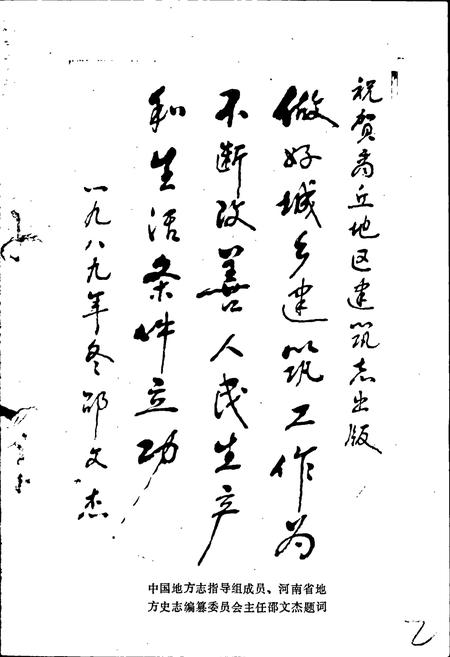 祝贺商丘地区建筑志出版
做好城乡建筑工作为
不断改善人民生产
和生活条件立功
一九八九年冬 邵文杰
中国地方志指导组成员、河南省地
方史志编纂委员会主任邵文杰题词